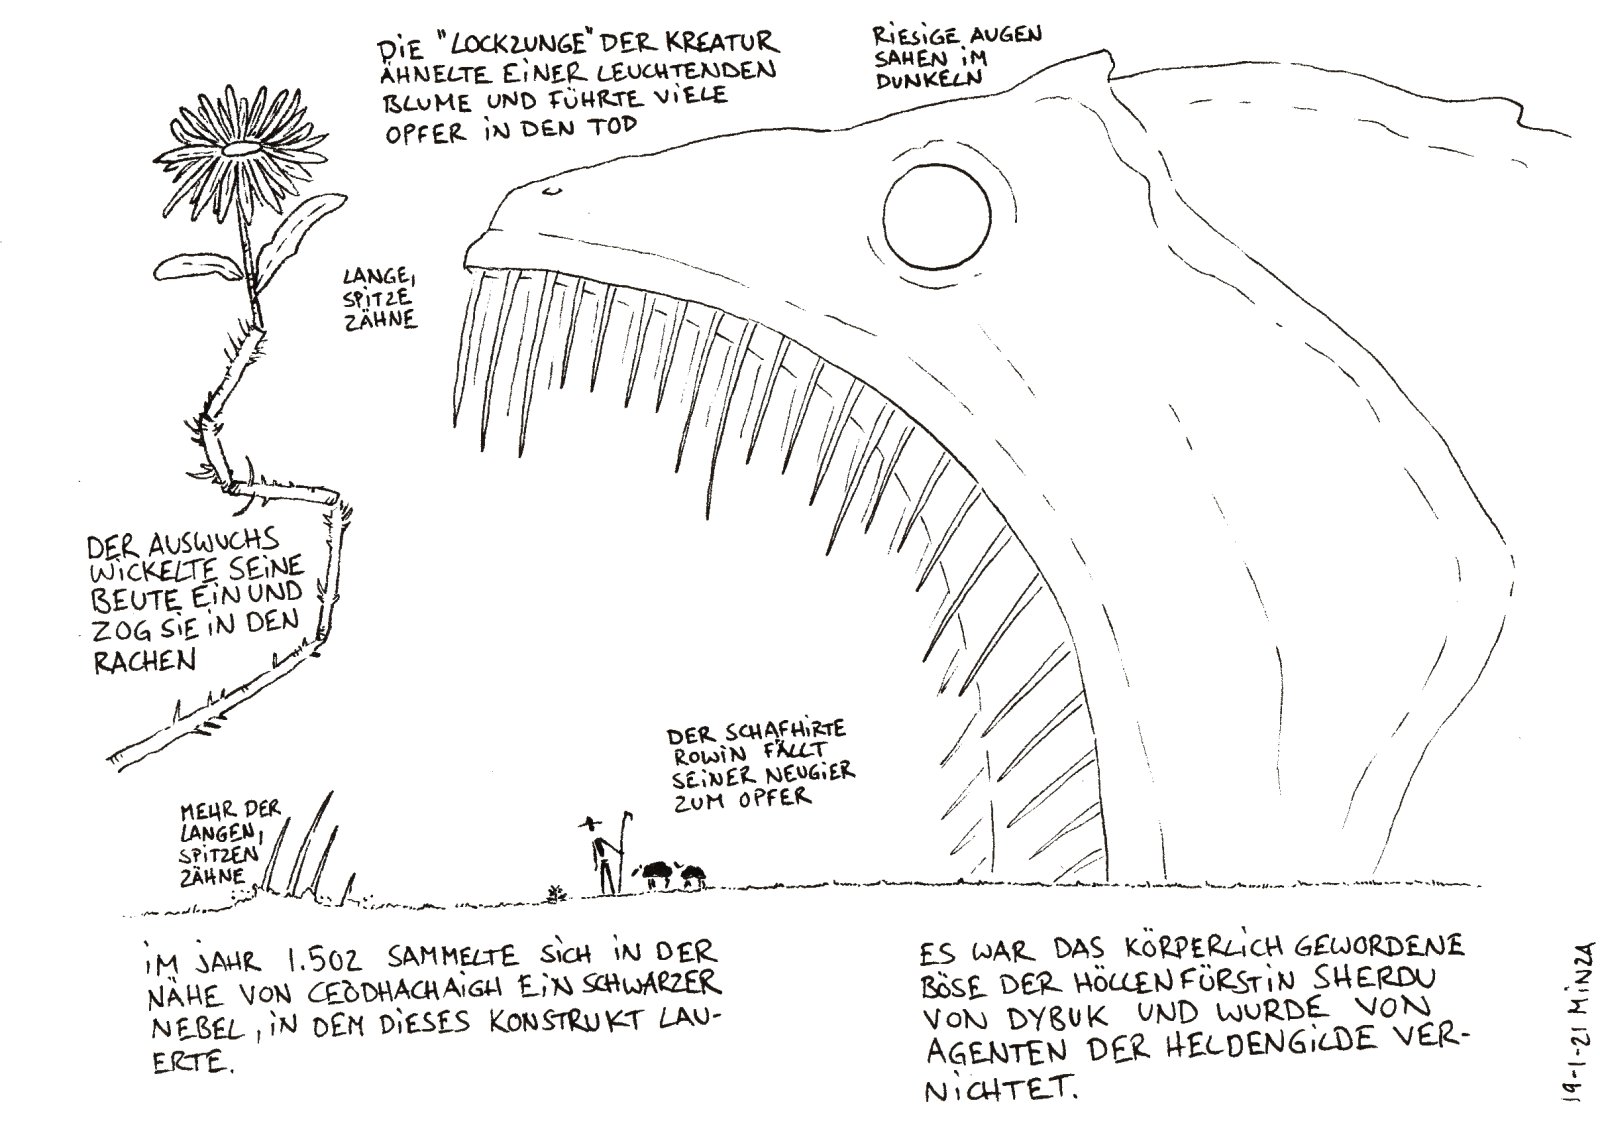 DIE "LOCKZUNGE" DER KREATUR
ÄHNELTE EINER LEUCHTENDEN
BLUME UND FÜHRTE VIELE
OPFER IN DEN TOD
RIESIGE AUGEN
SAHEN IM
DUNKELN
LANGE,
SPITZE
ZÄHNE
DER AUSWUCHS
WICKELTE SEINE
BEUTE EIN UND
ZOG SIE IN DEN
RACHEN
DER SCHAFHIRTE
ROWIN FÄLLT
SEINER NEUGIER
ZUM OPFER
MEHR DER
LANGEN,
SPITZEN
ZÄHNE
IM JAHR 1.502 SAMMELTE SICH IN DER
NÄHE VON CEÒDHACHAIGH EIN SCHWARZER
NEBEL, IN DEM DIESES KONSTRUKT LAU-
ERTE.
ES WAR DAS KÖRPERLICH GEWORDENE
BÖSE DER HÖLLENFÜRSTIN SHERDU
VON DYBUK UND WURDE VON
AGENTEN DER HELDENGILDE VER-
NICHTET.
19-1-21 MINZA